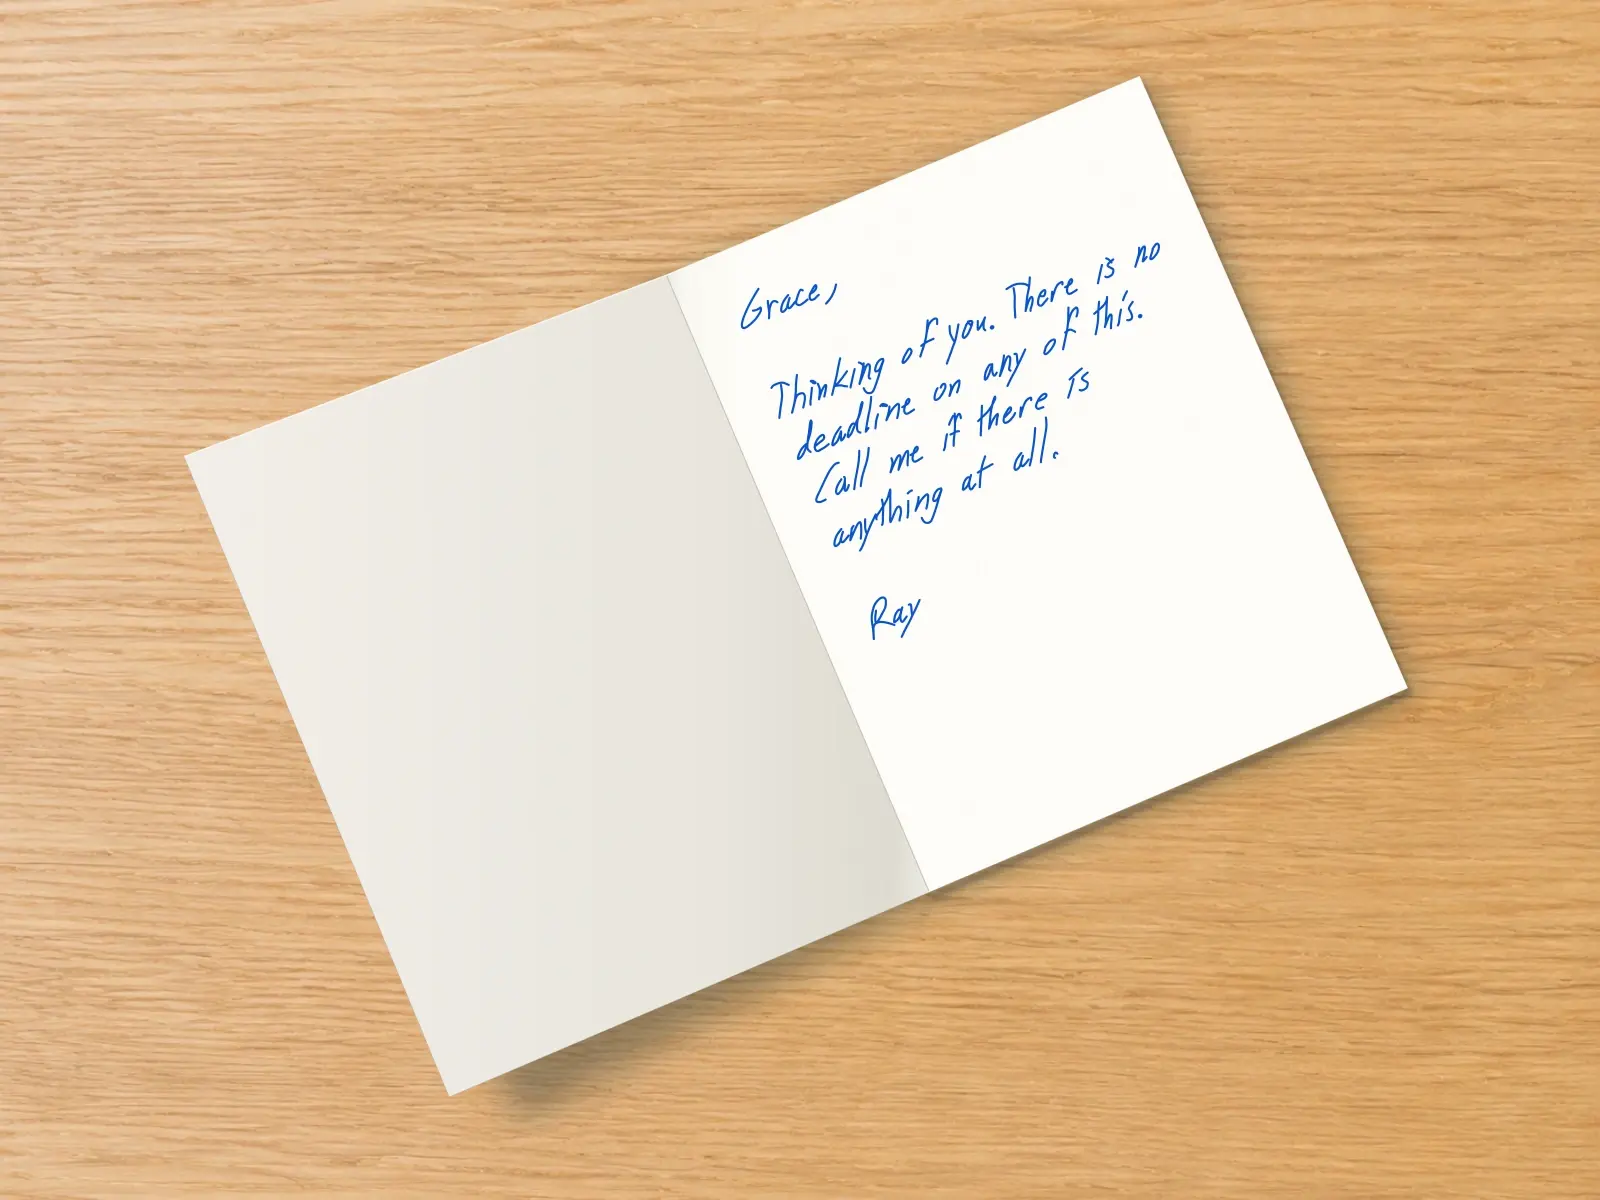 Grace,
Thinking of you. There is no
deadline on any of this.
Call me if there is
anything at all.
Ray